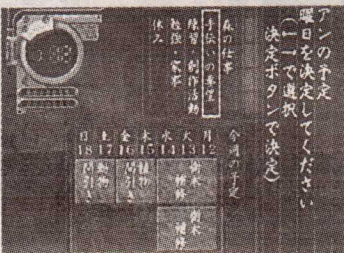 アンの予定
曜日を決定してください
(ー一で選択
決定ボタンで決定)
森の仕事
手伝いの希望
練習・創作活動
勉強・家事
休み
今週の予定
月 火 水 木 金 土 日
12 13 14 15 16 17 18
樹木
補修
植物
間引き
動物
間引き
樹木
補修